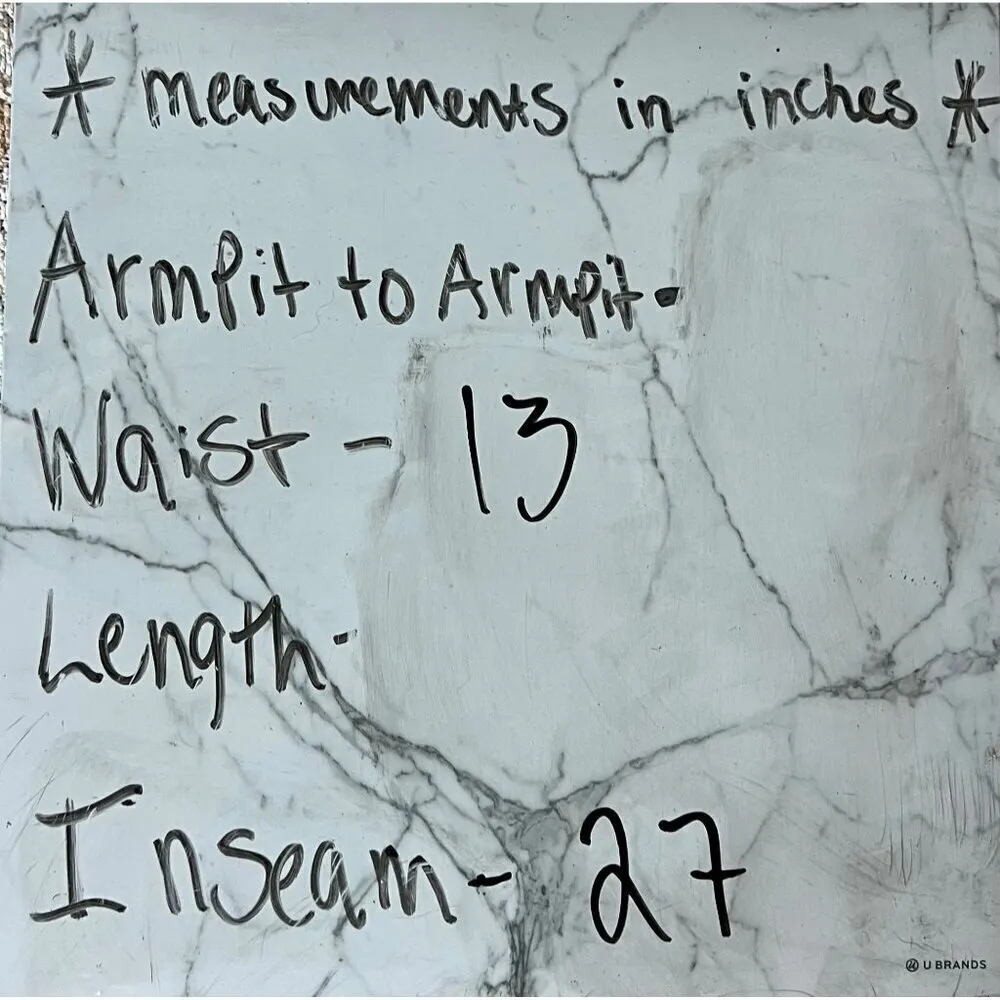 * measurements in inches *
ArmPit to Armpit -
Waist - 13
Length -
Inseam - 27
U BRANDS